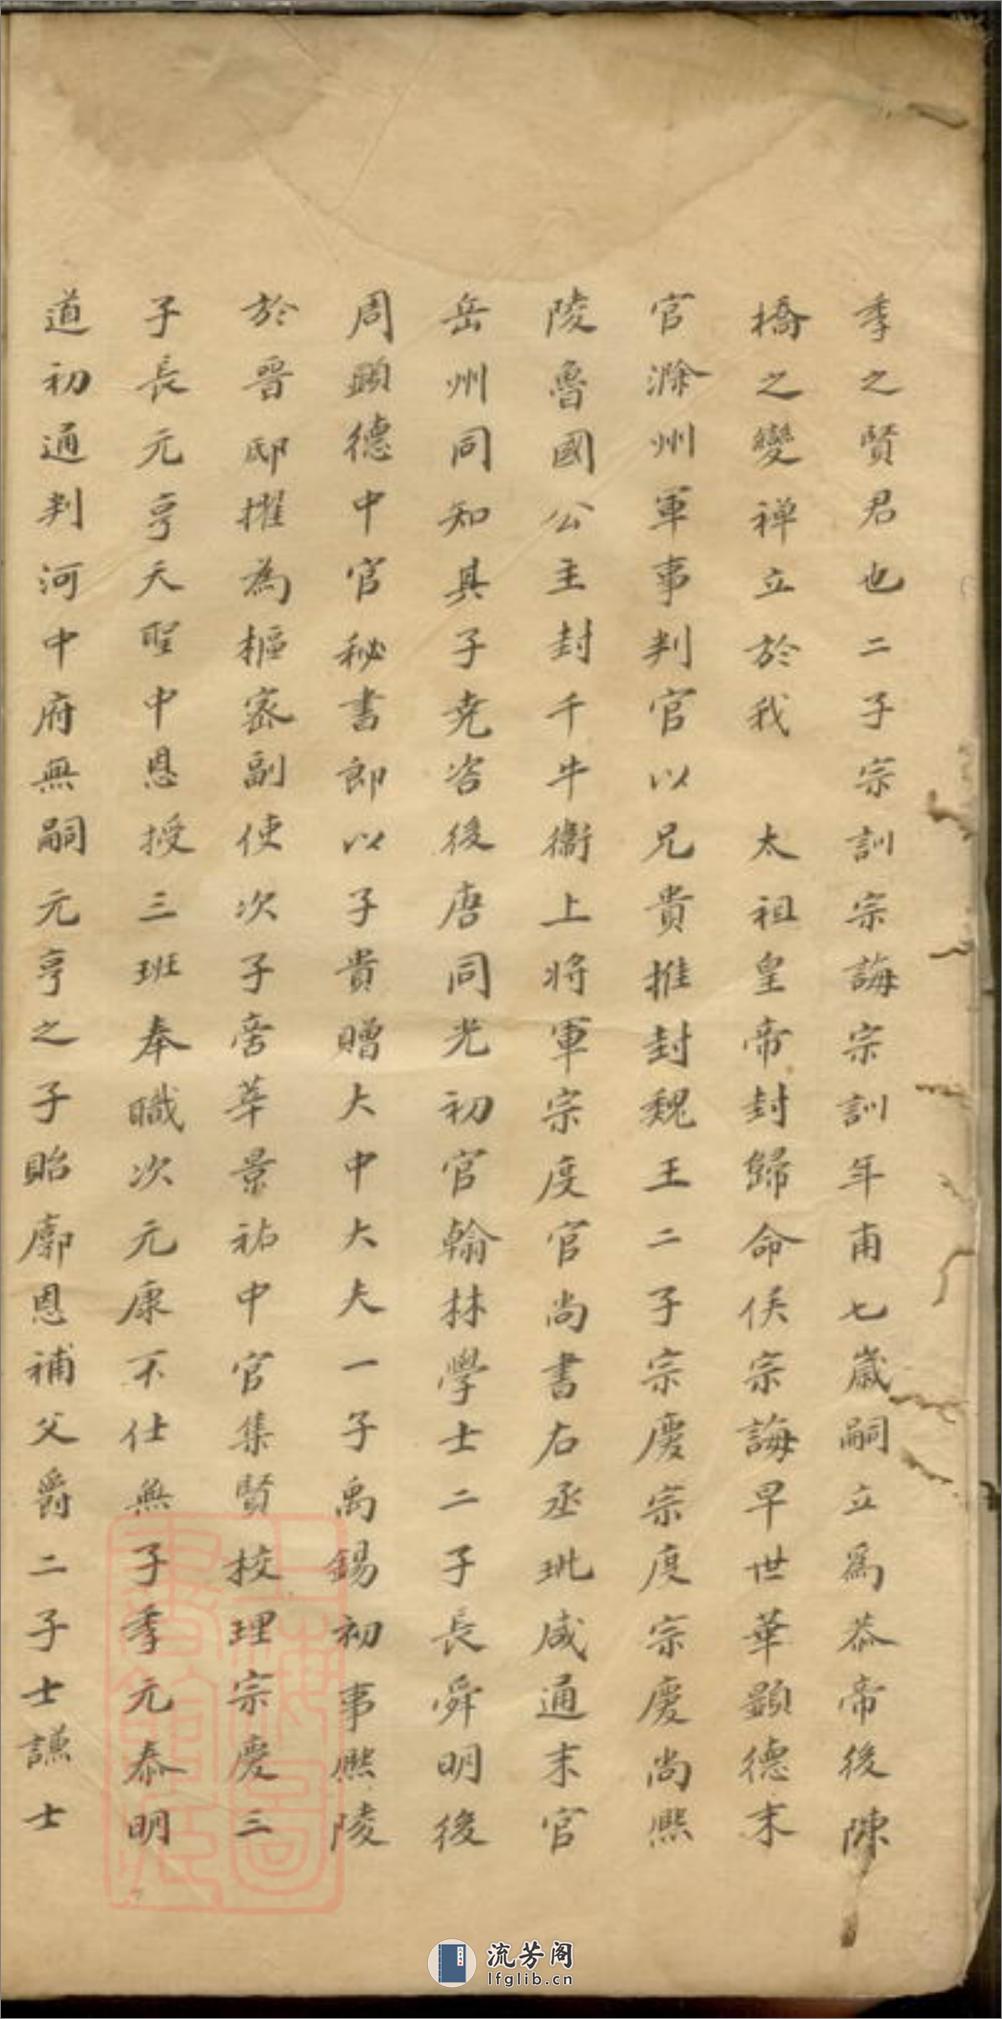 季之賢君也二子宗訓宗誨宗訓年甫七歲嗣立爲恭帝後陳
橋之變禅立於我　太祖皇帝封歸命侯宗誨早世華顯德末
官滁州軍事判官以兄貴推封魏王二子宗慶宗度宗慶尚熙
陵魯國公主封千牛衞上將軍宗度官尚書右丞玭咸通末官
岳州同知其子堯咨後唐同光初官翰林學士二子長舜明後
周顯德中官秘書郎以子貴贈大中大夫一子禹錫初事熙陵
於晉邸擢為樞宻副使次子旁華景祐中官集賢校理宗慶三
子長元亨天聖中恩授三班奉職次元康不仕無子季元泰明
道初通判河中府無嗣元亨之子貽廓恩補父爵二子士謙士
流芳阁
lfglib.cn